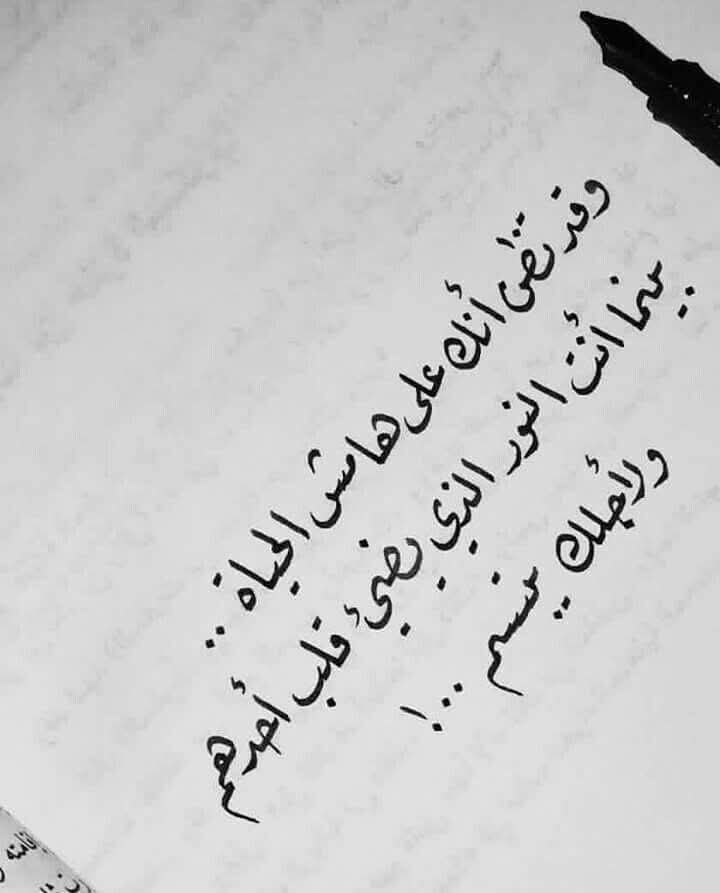 وقد تظن أنك على هامش الحياة ..
بينما أنت النور الذي يضيئ قلب أحدهم
ولأجلك يبتسم ..!